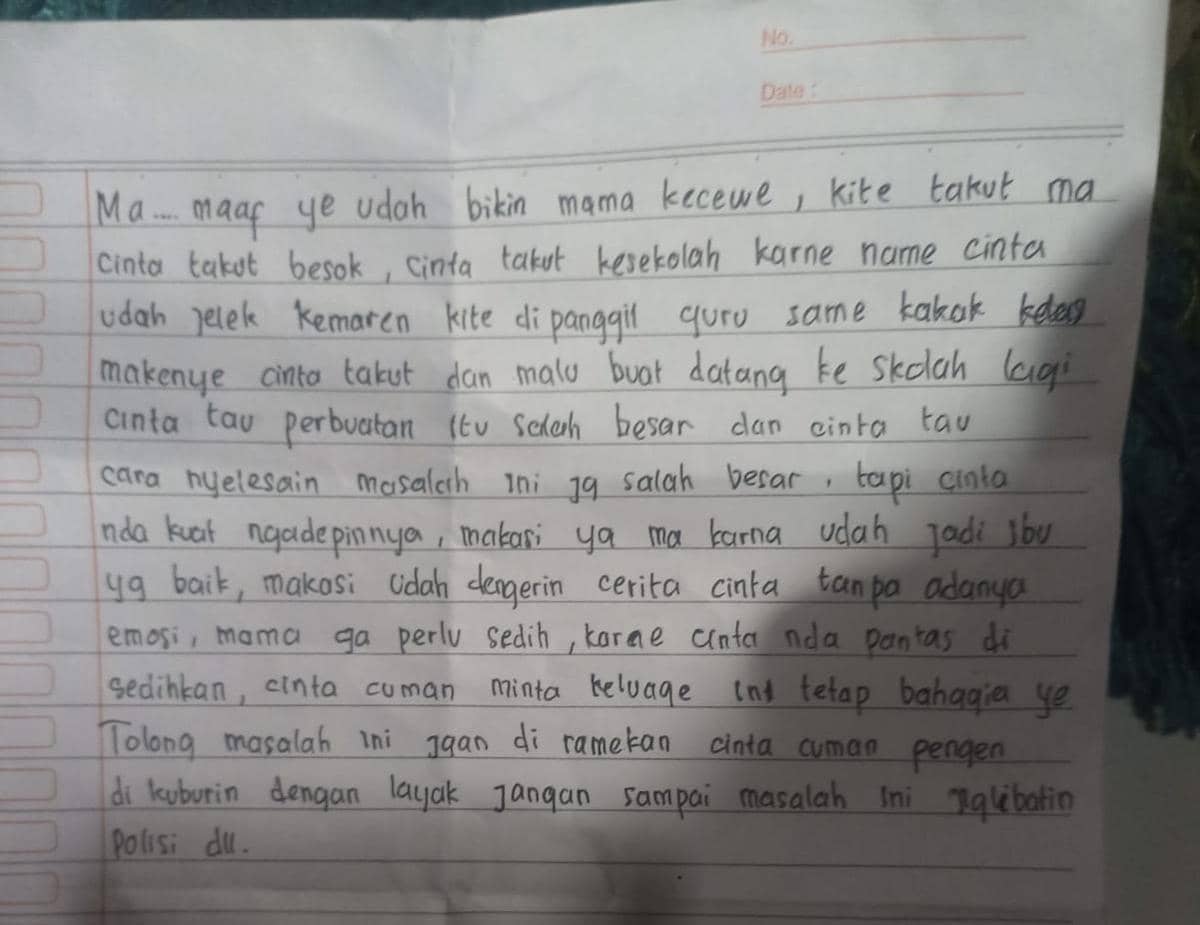 No.
Date :
Ma.... maaf ye udah bikin mama kecewe, kite takut ma
cinta takut besok, cinta takut kesekolah karne name cinta
udah jelek kemaren kite di panggil guru same kakak
makenye cinta takut dan malu buat datang ke skolah lagi
cinta tau perbuatan itu salah besar dan cinta tau
cara nyelesain masalah ini jg salah besar, tapi cinta
nda kuat ngadepinnya, makasi ya ma karna udah jadi ibu
yg baik, makasi udah dengerin cerita cinta tanpa adanya
emosi, mama ga perlu sedih, karne cinta nda pantas di
sedihkan, cinta cuman minta keluage ini tetap bahagia ye
Tolong masalah ini jgan di ramekan cinta cuman pengen
di kuburin dengan layak jangan sampai masalah ini nglibatin
polisi dll.